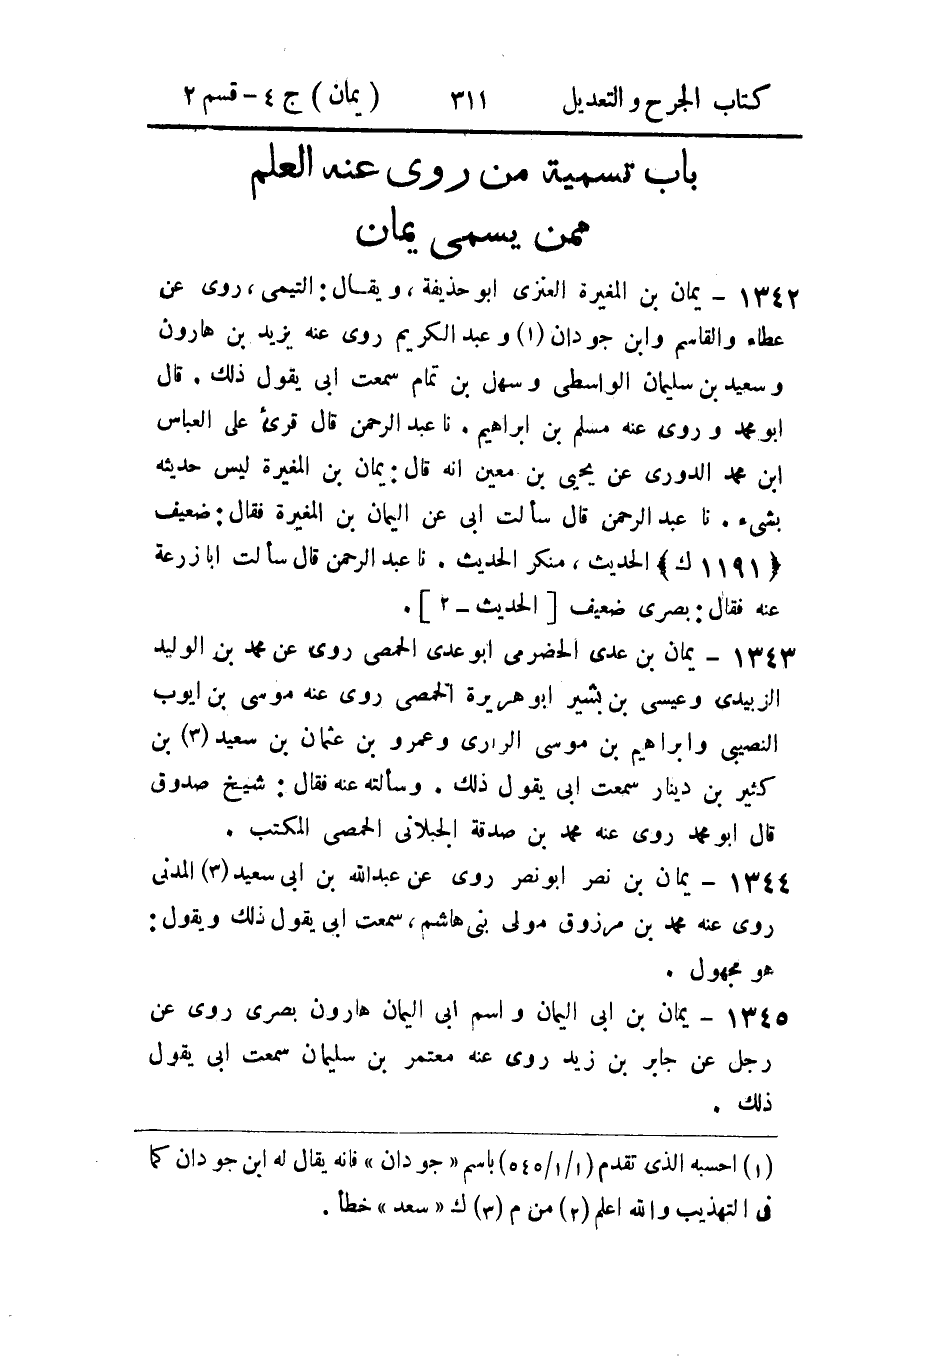 كتاب الجرح والتعديل ٣١١ ( يمان ) ج ٤ - قسم ٢
باب تسمية من روى عنه العلم
ممن يسمى يمان
١٣٤٢ - يمان بن المغيرة العنزى ابو حذيفة ، ويقال : التيمى ، روى عن
عطاء والقاسم وابن جودان (١) وعبد الكريم روى عنه يزيد بن هارون
وسعيد بن سليمان الواسطى وسهل بن تمام سمعت ابى يقول ذلك . قال
ابو محمد وروى عنه مسلم بن ابراهيم . نا عبد الرحمن قال قرئ على العباس
ابن محمد الدورى عن يحيى بن معين انه قال : يمان بن المغيرة ليس حديثه
بشىء . نا عبد الرحمن قال سألت ابى عن اليمان بن المغيرة فقال : ضعيف
﴿ ١١٩١ ك ﴾ الحديث ، منكر الحديث . نا عبد الرحمن قال سألت ابا زرعة
عنه فقال : بصرى ضعيف [ الحديث - ٢ ] .
١٣٤٣ - يمان بن عدى الحضرمى ابو عدى الحمصى روى عن محمد بن الوليد
الزبيدى وعيسى بن بشير ابو هريرة الحمصى روى عنه موسى بن ايوب
النصيبى وابراهيم بن موسى الرازى وعمرو بن عثمان بن سعيد (٣) بن
كثير بن دينار سمعت ابى يقول ذلك . وسألته عنه فقال : شيخ صدوق
قال ابو محمد روى عنه محمد بن صدقة الجبلانى الحمصى المكتب .
١٣٤٤ - يمان بن نصر ابو نصر روى عن عبد الله بن ابى سعيد (٣) المدنى
روى عنه محمد بن مرزوق مولى بنى هاشم ، سمعت ابى يقول ذلك ويقول :
هو مجهول .
١٣٤٥ - يمان بن ابى اليمان واسم ابى اليمان هارون بصرى روى عن
رجل عن جابر بن زيد روى عنه معتمر بن سليمان سمعت ابى يقول
ذلك .
(١) احسبه الذى تقدم (١/١/٥٤٥) باسم « جودان » فانه يقال له ابن جودان كما
فى التهذيب والله اعلم (٢) من م (٣) ك « سعد » خطأ .